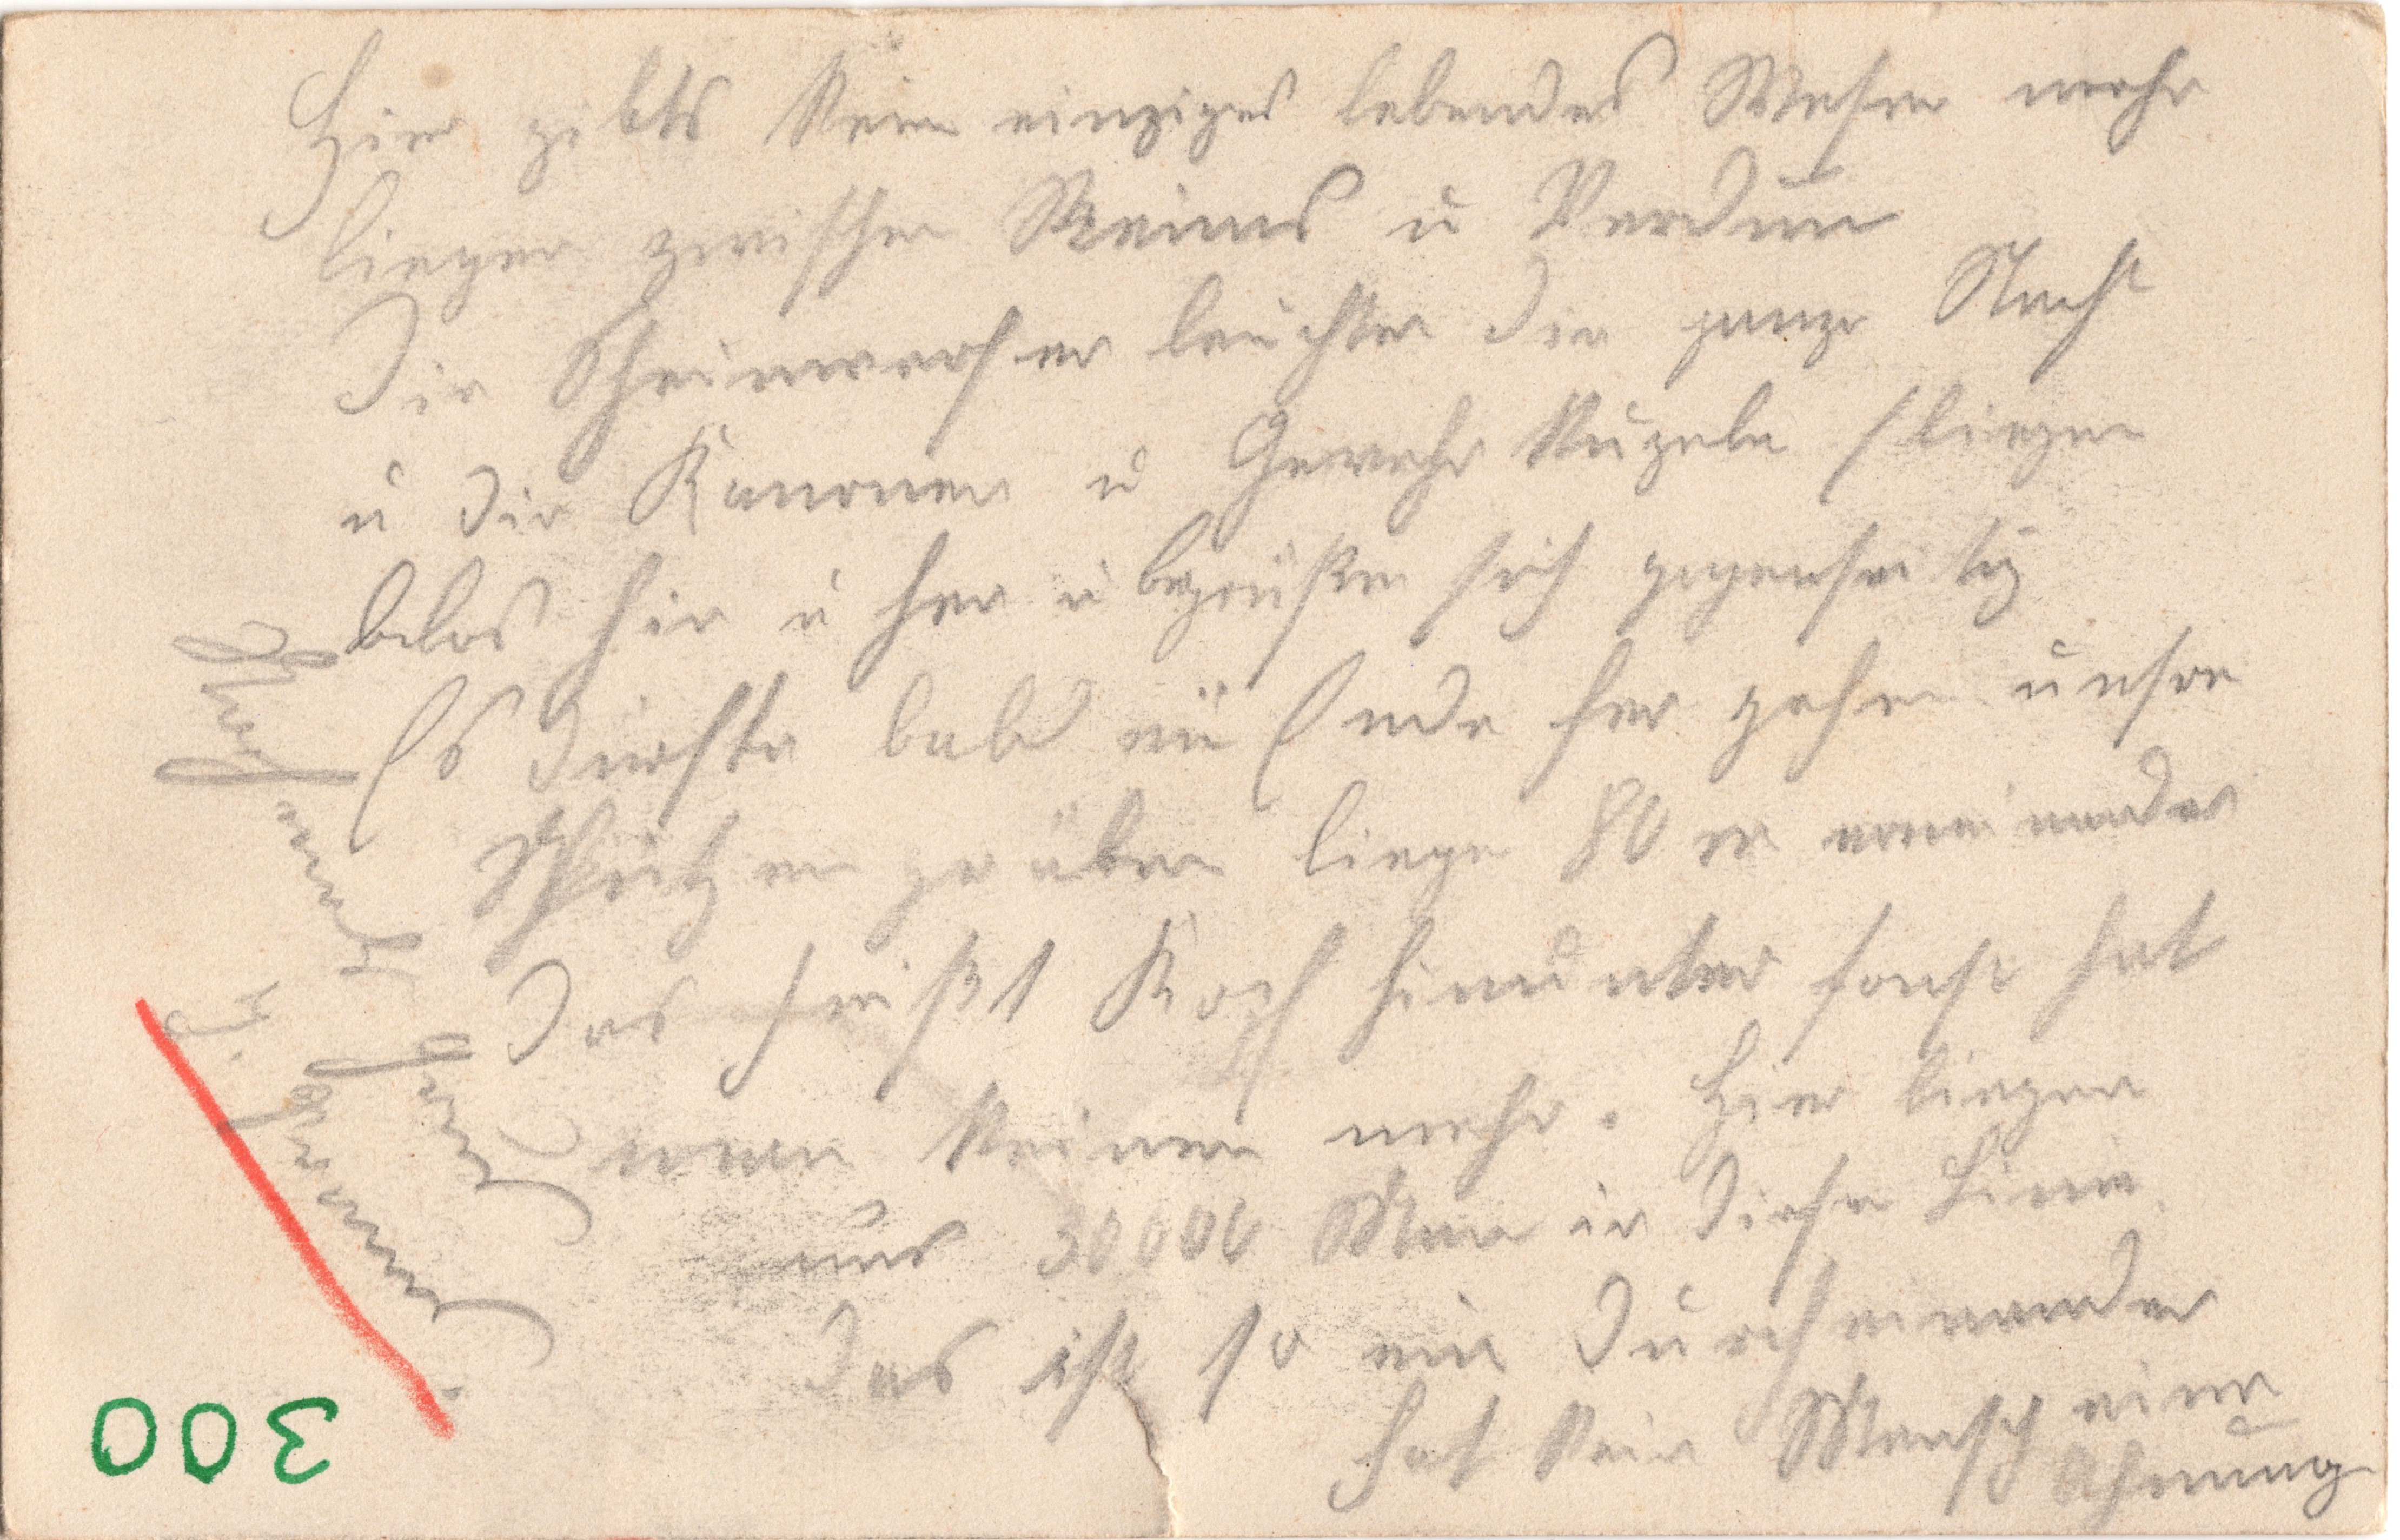 Hier gibts kein einziges lebendes Wesen mehr
liegen zwischen Reims u Verdun
Die Scheinwerfer leuchten die ganze Nacht
u die Kanonen u Gewehr Kugeln fliegen
blos hin u her u begrüßen sich gegenseitig
Es dürfte bald ein Ende her gehen unsre
Schützengräben liegen 80 m voneinander
das heißt Kopf hinunter sonst hat
man keinen mehr. Hier liegen
uns 30000 Man in dieser Linie.
das ist so ein Durcheinander
hat kein Mensch eine
Ahnung
300